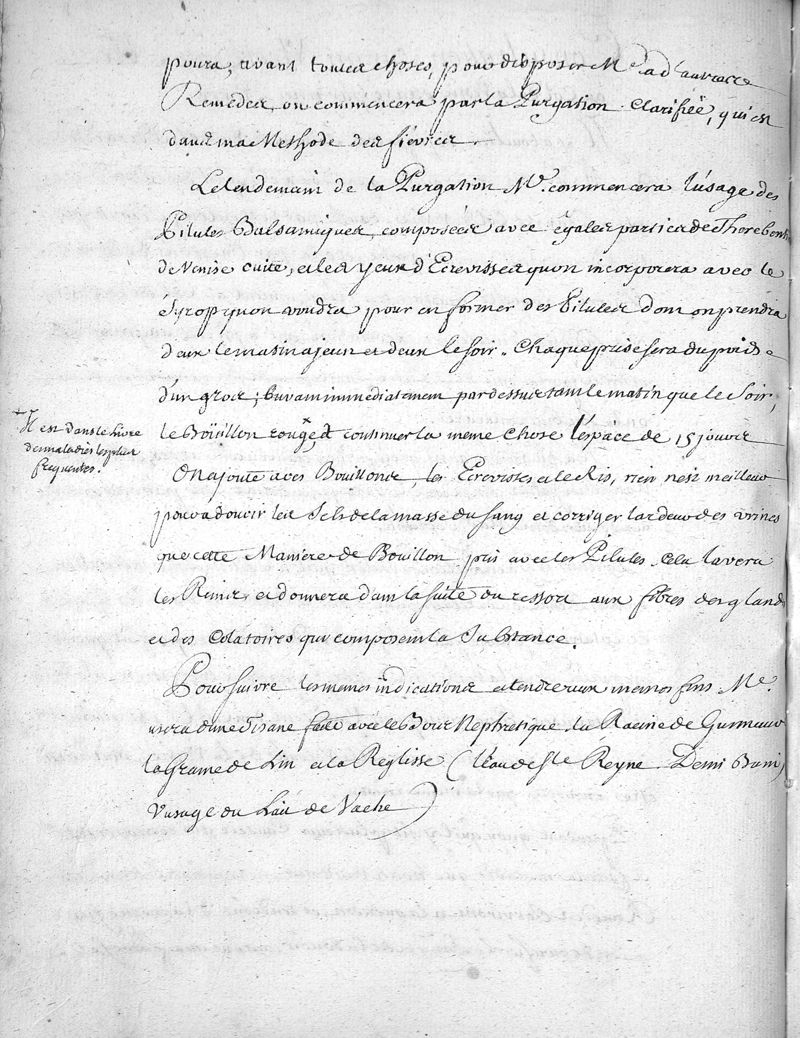 poura, avant toutes choses, pour disposer Mr. a d'autres
Remedes, on commencera par la Purgation Clarifiée, qui est
dans ma Methode des fievres.
Le lendemain de la Purgation Mr. commencera l'usage des
Pilules Balsamiques, composées avec égales parties de Therebent
de Venise cuite, et les yeux d'Ecrevisses qu'on incorporera avec le
Syrop qu'on voudra pour en former des Pilules dont on prendra
deux le matin a jeun et deux le soir. Chaque prise sera du poids
d'un gros; buvant immediatement par dessus tant le matin que le Soir,
le Boüillon rouge et continuer la meme chose l'espace de 15 jours
Il est dans le Livre
des maladies les plus
frequentes.
On ajoute a ces Bouillons, les Ecrevisses et le Ris, rien n'est meilleur
pour adoucir les Sels de la masse du sang et corriger l'ardeur des urines
que cette Maniere de Bouillon pris avec les Pilules. Cela lavera
les Reins et donnera dans la suite du ressort aux fibres des gland
et des Colatoires qui composent la Substance.
Pour suivre les memes indications et tendre aux memes fins Mr.
usera d'une Tisane faite avec le Bois Nephretique la Racine de Guimauve
la Graine de Lin et la Reglisse (l'eau de Ste Reyne. Demi Bain,
l'usage du Lait de Vache)